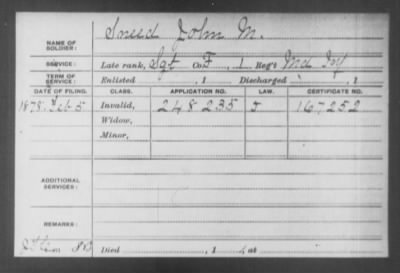 NAME OF SOLDIER: Sneed John M.
SERVICE: Late rank, Sgt Co. F, 1 Reg't Md Inf
TERM OF SERVICE: Enlisted , 1 Discharged , 1
DATE OF FILING. CLASS. APPLICATION NO. LAW. CERTIFICATE NO.
1878. Feb 5 Invalid, 248 235 J 167252
Widow,
Minor,
ADDITIONAL SERVICES:
REMARKS:
Died , 1 , at